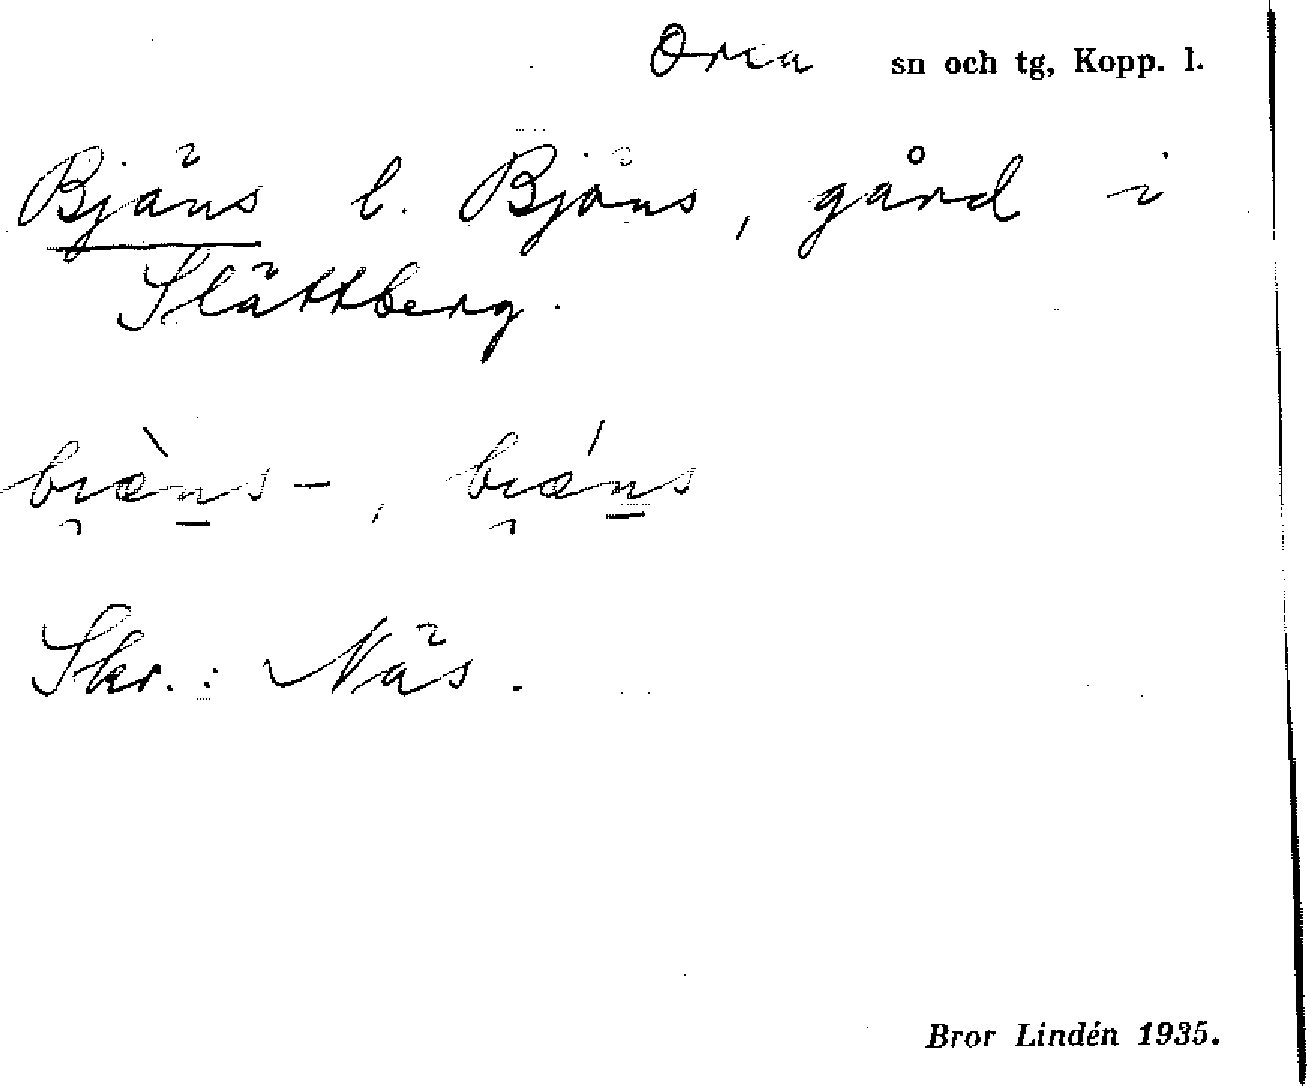 Orsa sn och tg, Kopp. l.
Bjäns l. Bjöns, gård i
Slättberg.
Skr.: Näs.
Bror Lindén 1935.